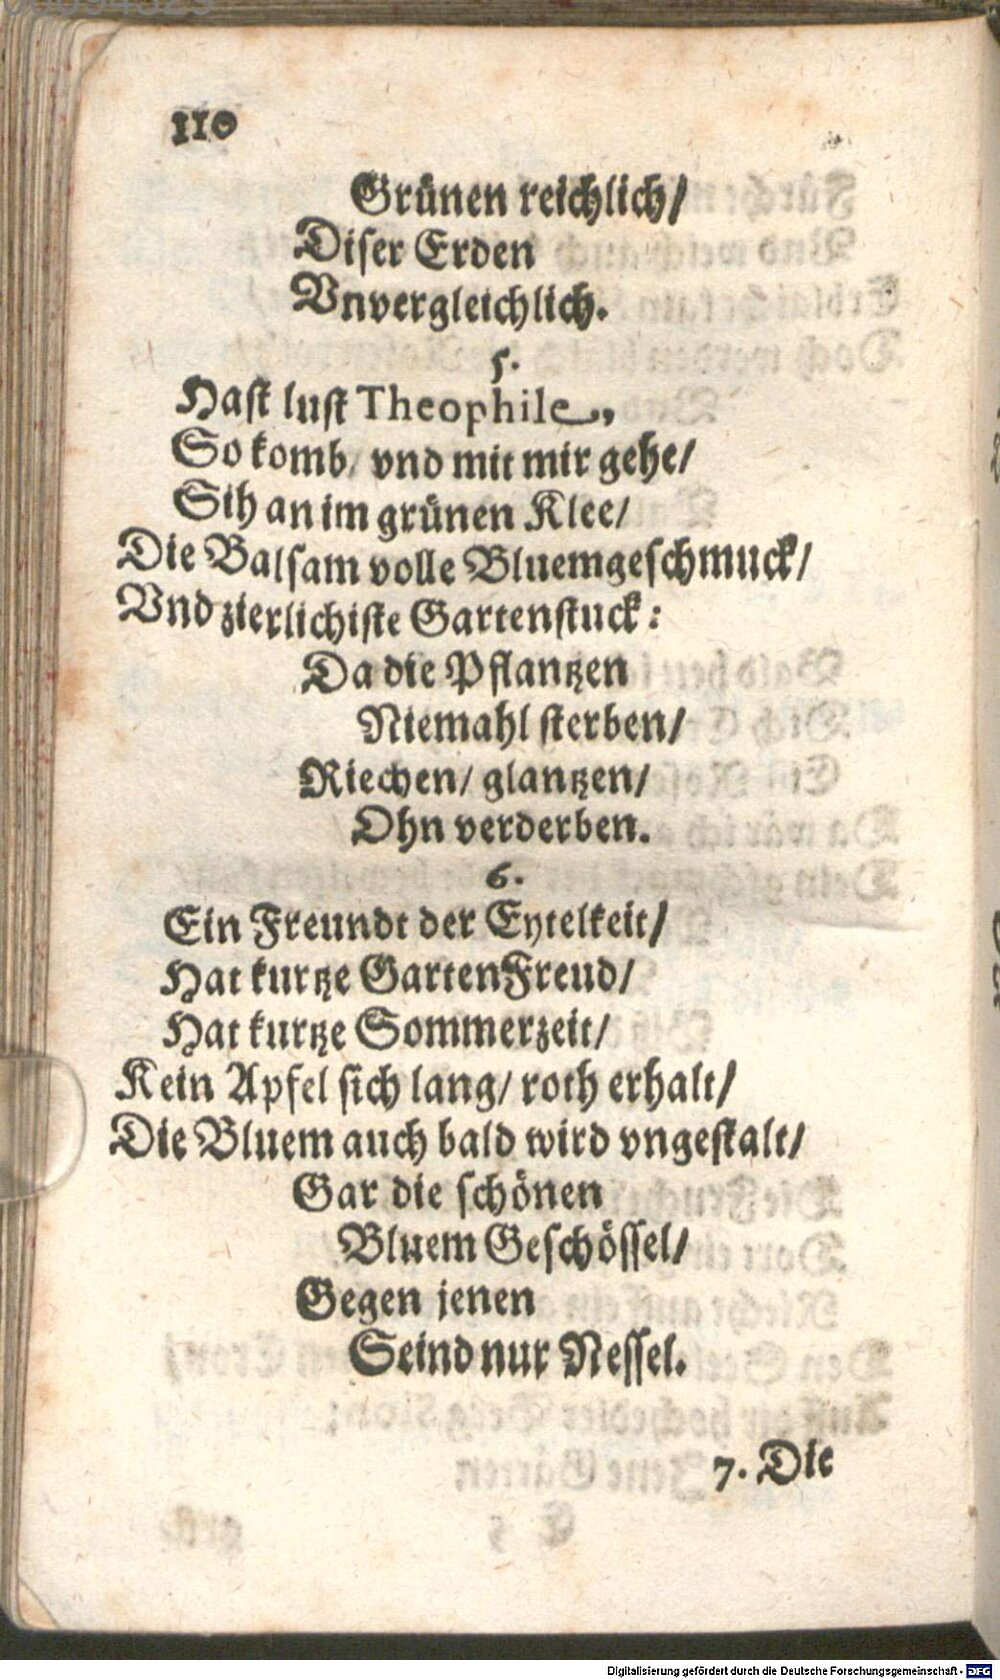 110
Grünen reichlich/
Diser Erden
Vnvergleichlich.
5.
Hast lust Theophile,
So komb/ vnd mit mir gehe/
Sih an im grünen Klee/
Die Balsam volle Bluemgeschmuck/
Vnd zierlichiste Gartenstuck:
Da die Pflantzen
Niemahl sterben/
Riechen/ glantzen/
Ohn verderben.
6.
Ein Freundt der Eytelkeit/
Hat kurtze GartenFreud/
Hat kurtze Sommerzeit/
Kein Apfel sich lang/ roth erhalt/
Die Bluem auch bald wird vngestalt/
Gar die schönen
Bluem Geschössel/
Gegen jenen
Seind nur Nessel.
7. Die
Digitalisierung gefördert durch die Deutsche Forschungsgemeinschaft - DFG